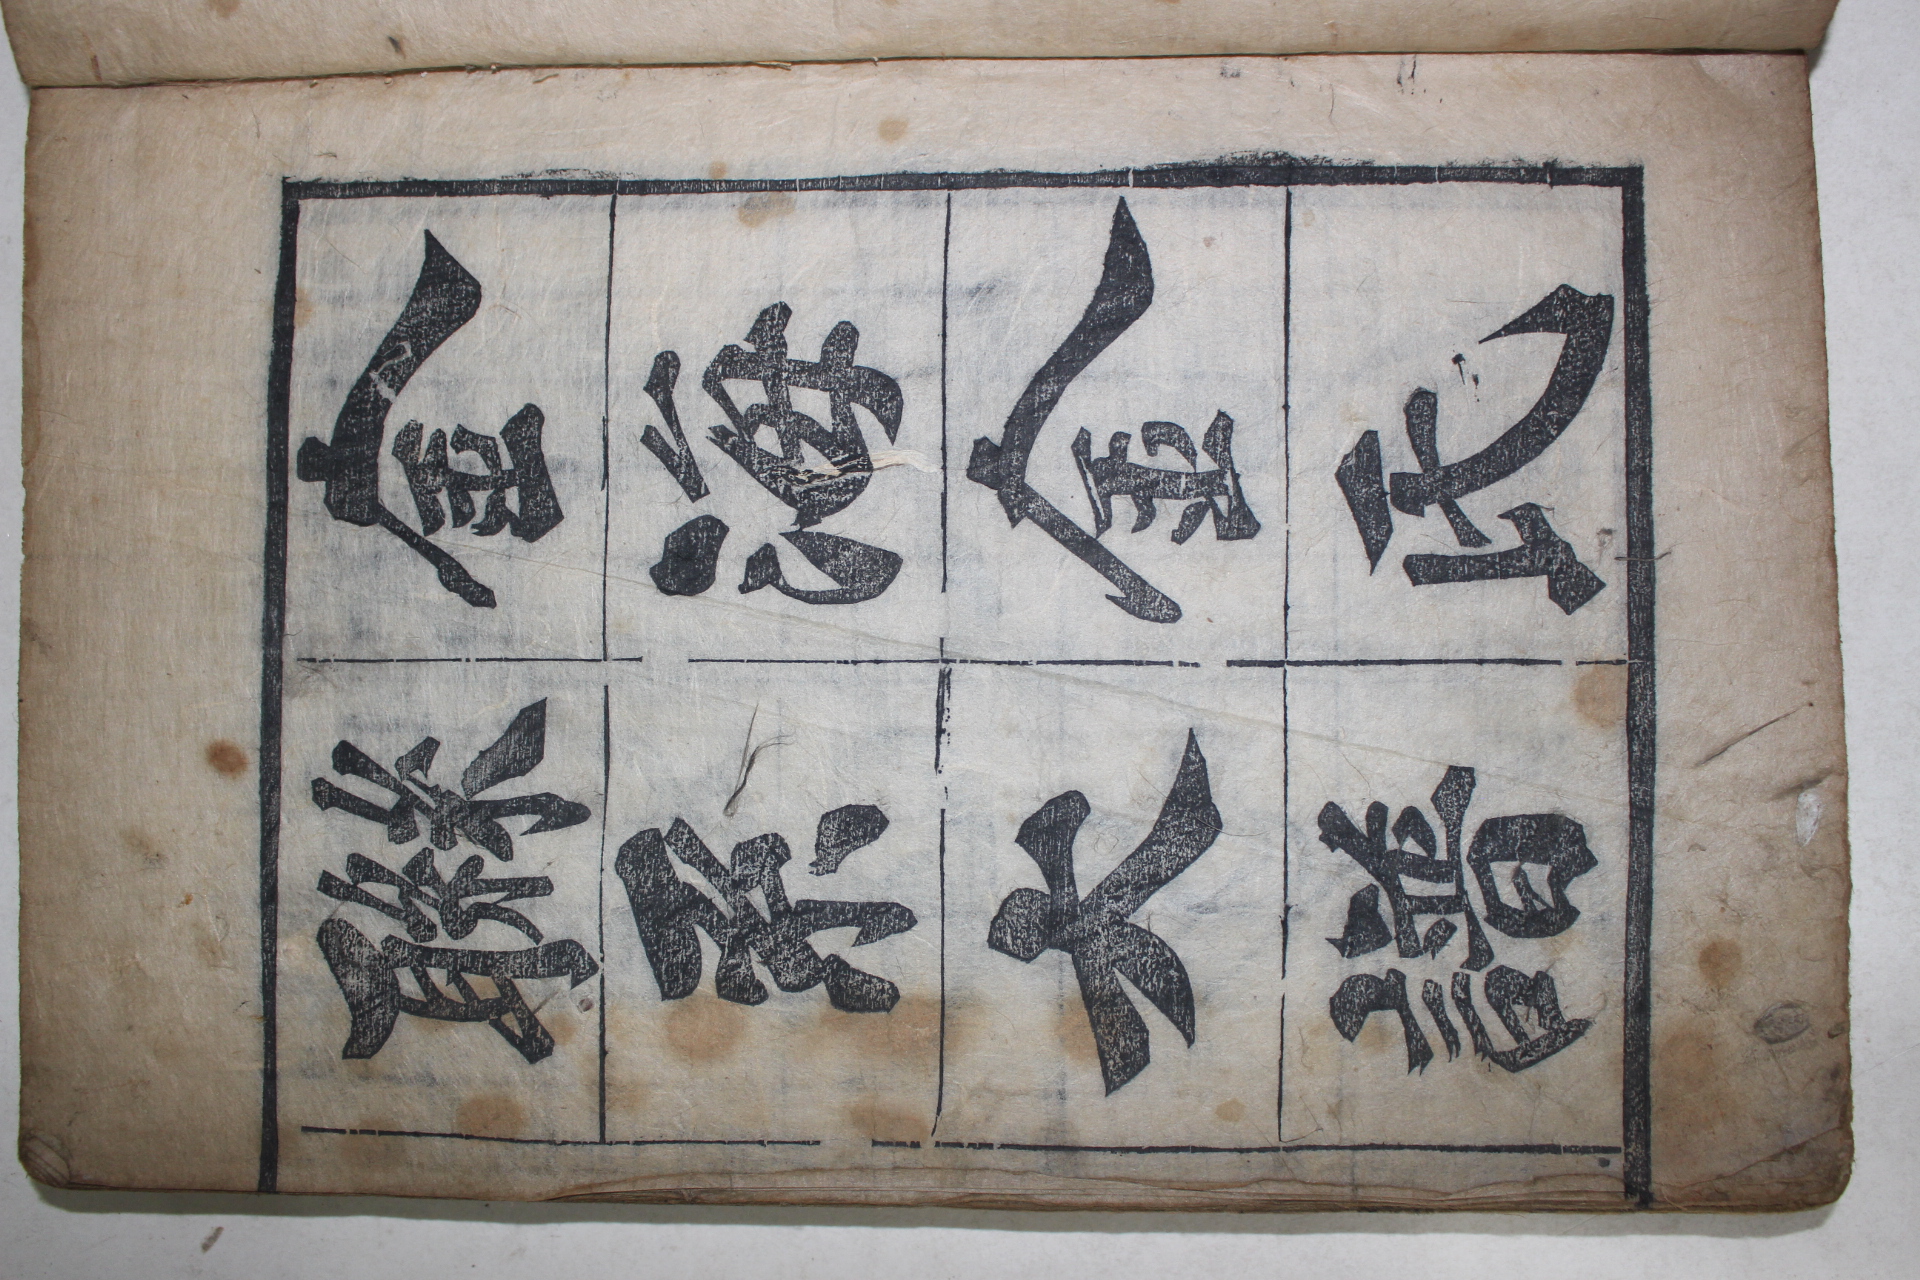 金海金氏
聮系大譜